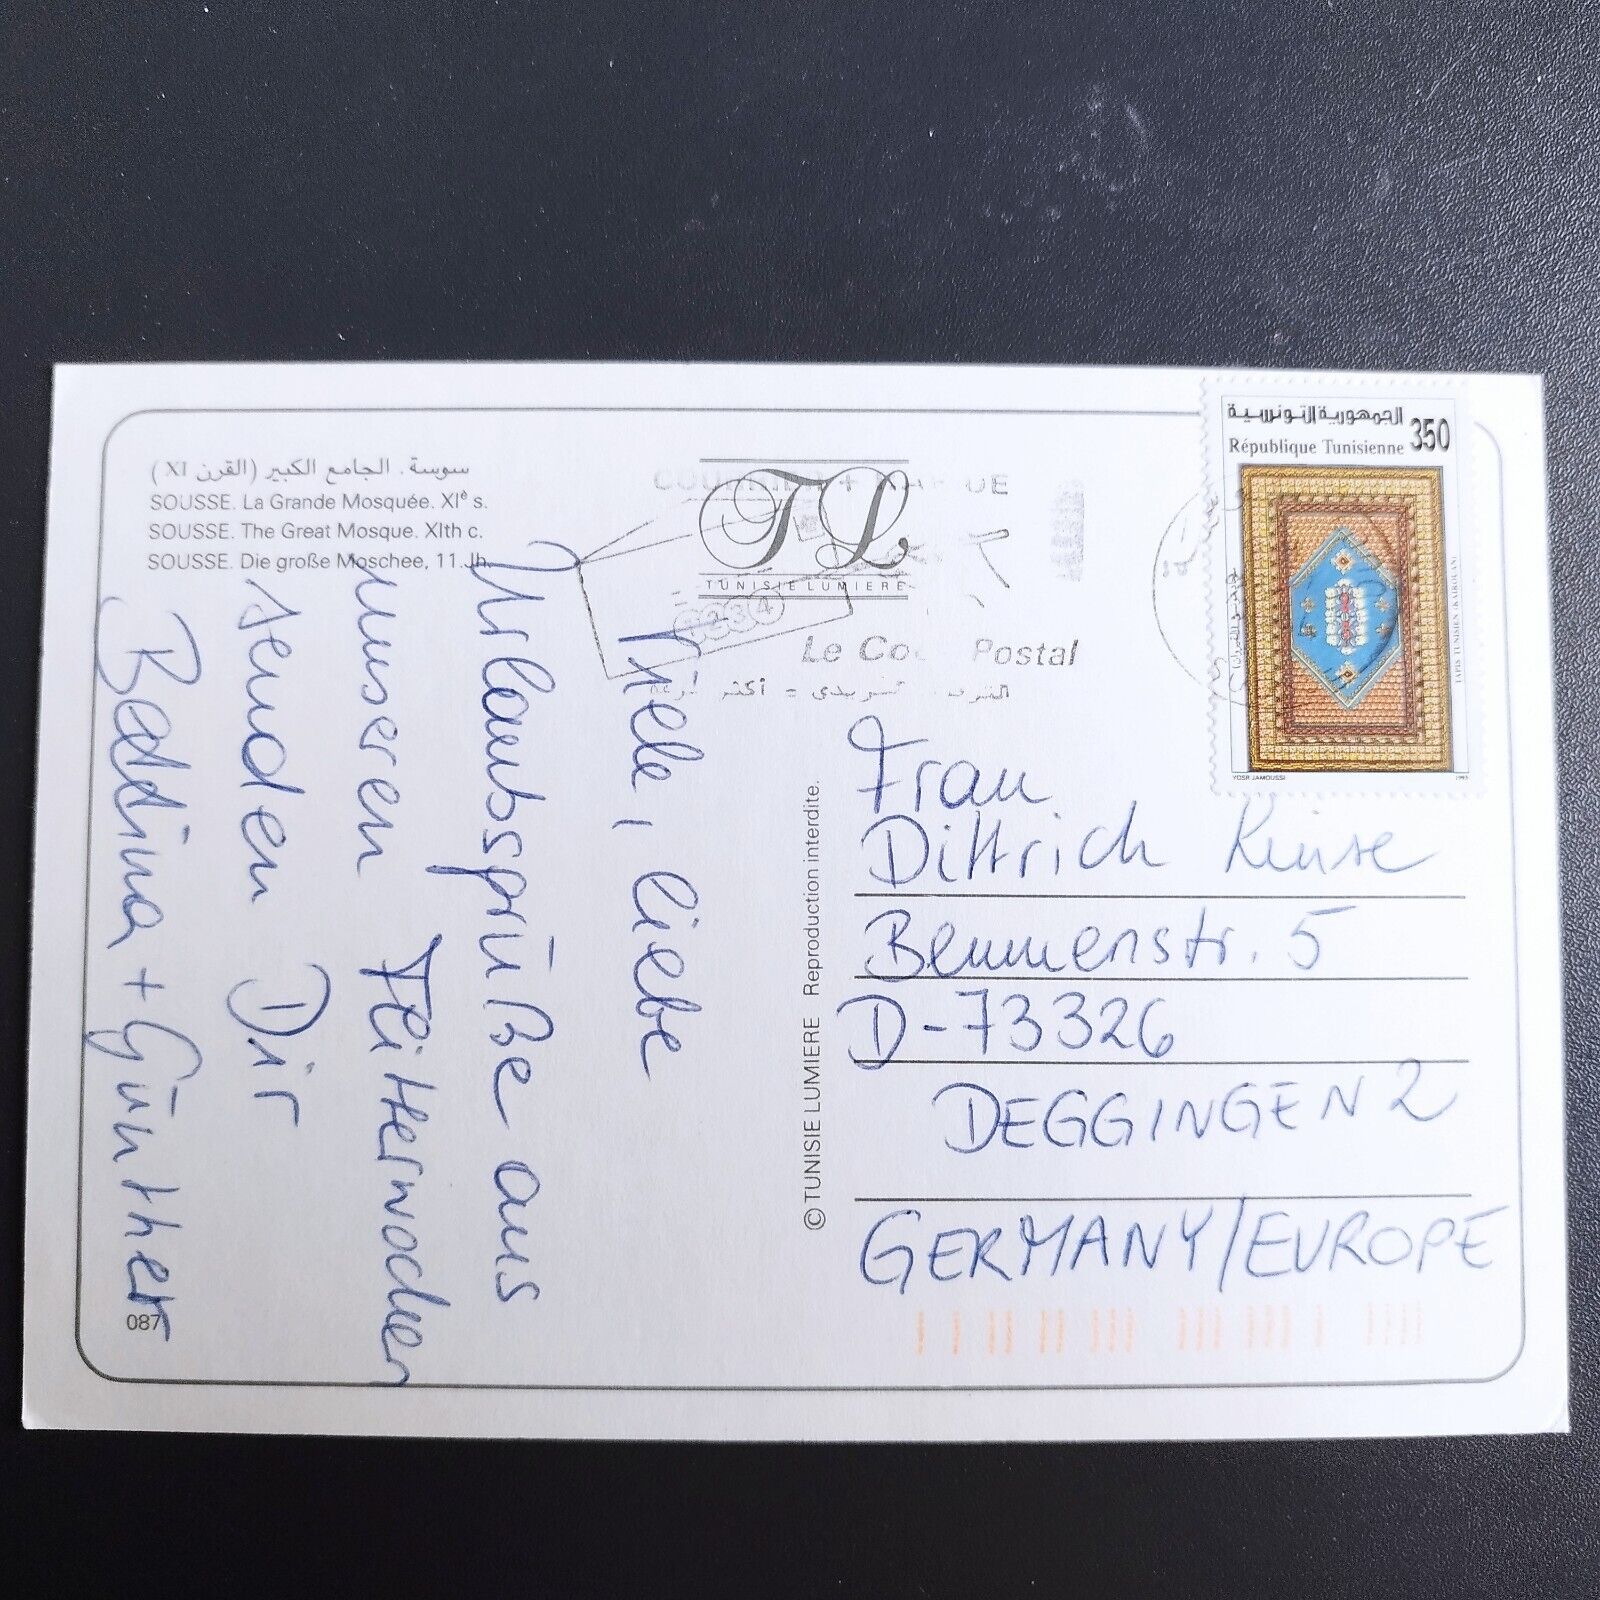 سوسة . الجامع الكبير (القرن XI)
SOUSSE. La Grande Mosquée. XIè s.
SOUSSE. The Great Mosque. XIth c.
SOUSSE. Die große Moschee, 11. Jh.
Viele, liebe
Urlaubsgrüße aus
unseren Flitterwochen
senden Dir
Bettina + Günther
087
TL
TUNISIE LUMIERE
1234
Le Code Postal
© TUNISIE LUMIERE Reproduction interdite.
الجمهورية التونسية
République Tunisienne 350
TAPIS TUNISIEN (KAIROUAN)
YOSR JAMOUSSI 1993
Frau
Dittrich
Bemmenstr. 5
D-73326
DEGGINGEN 2
GERMANY/EUROPE